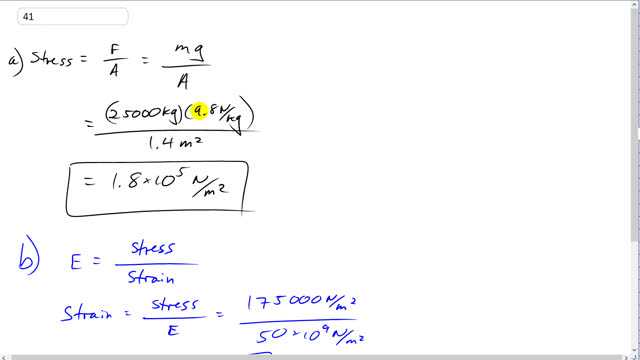 41
a) Stress = F/A = mg/A
= (25000 kg)(9.8 N/kg)/1.4 m²
= 1.8 × 10⁵ N/m²
b) E = stress/strain
Strain = stress/E = 175000 N/m²/50 × 10⁹ N/m²